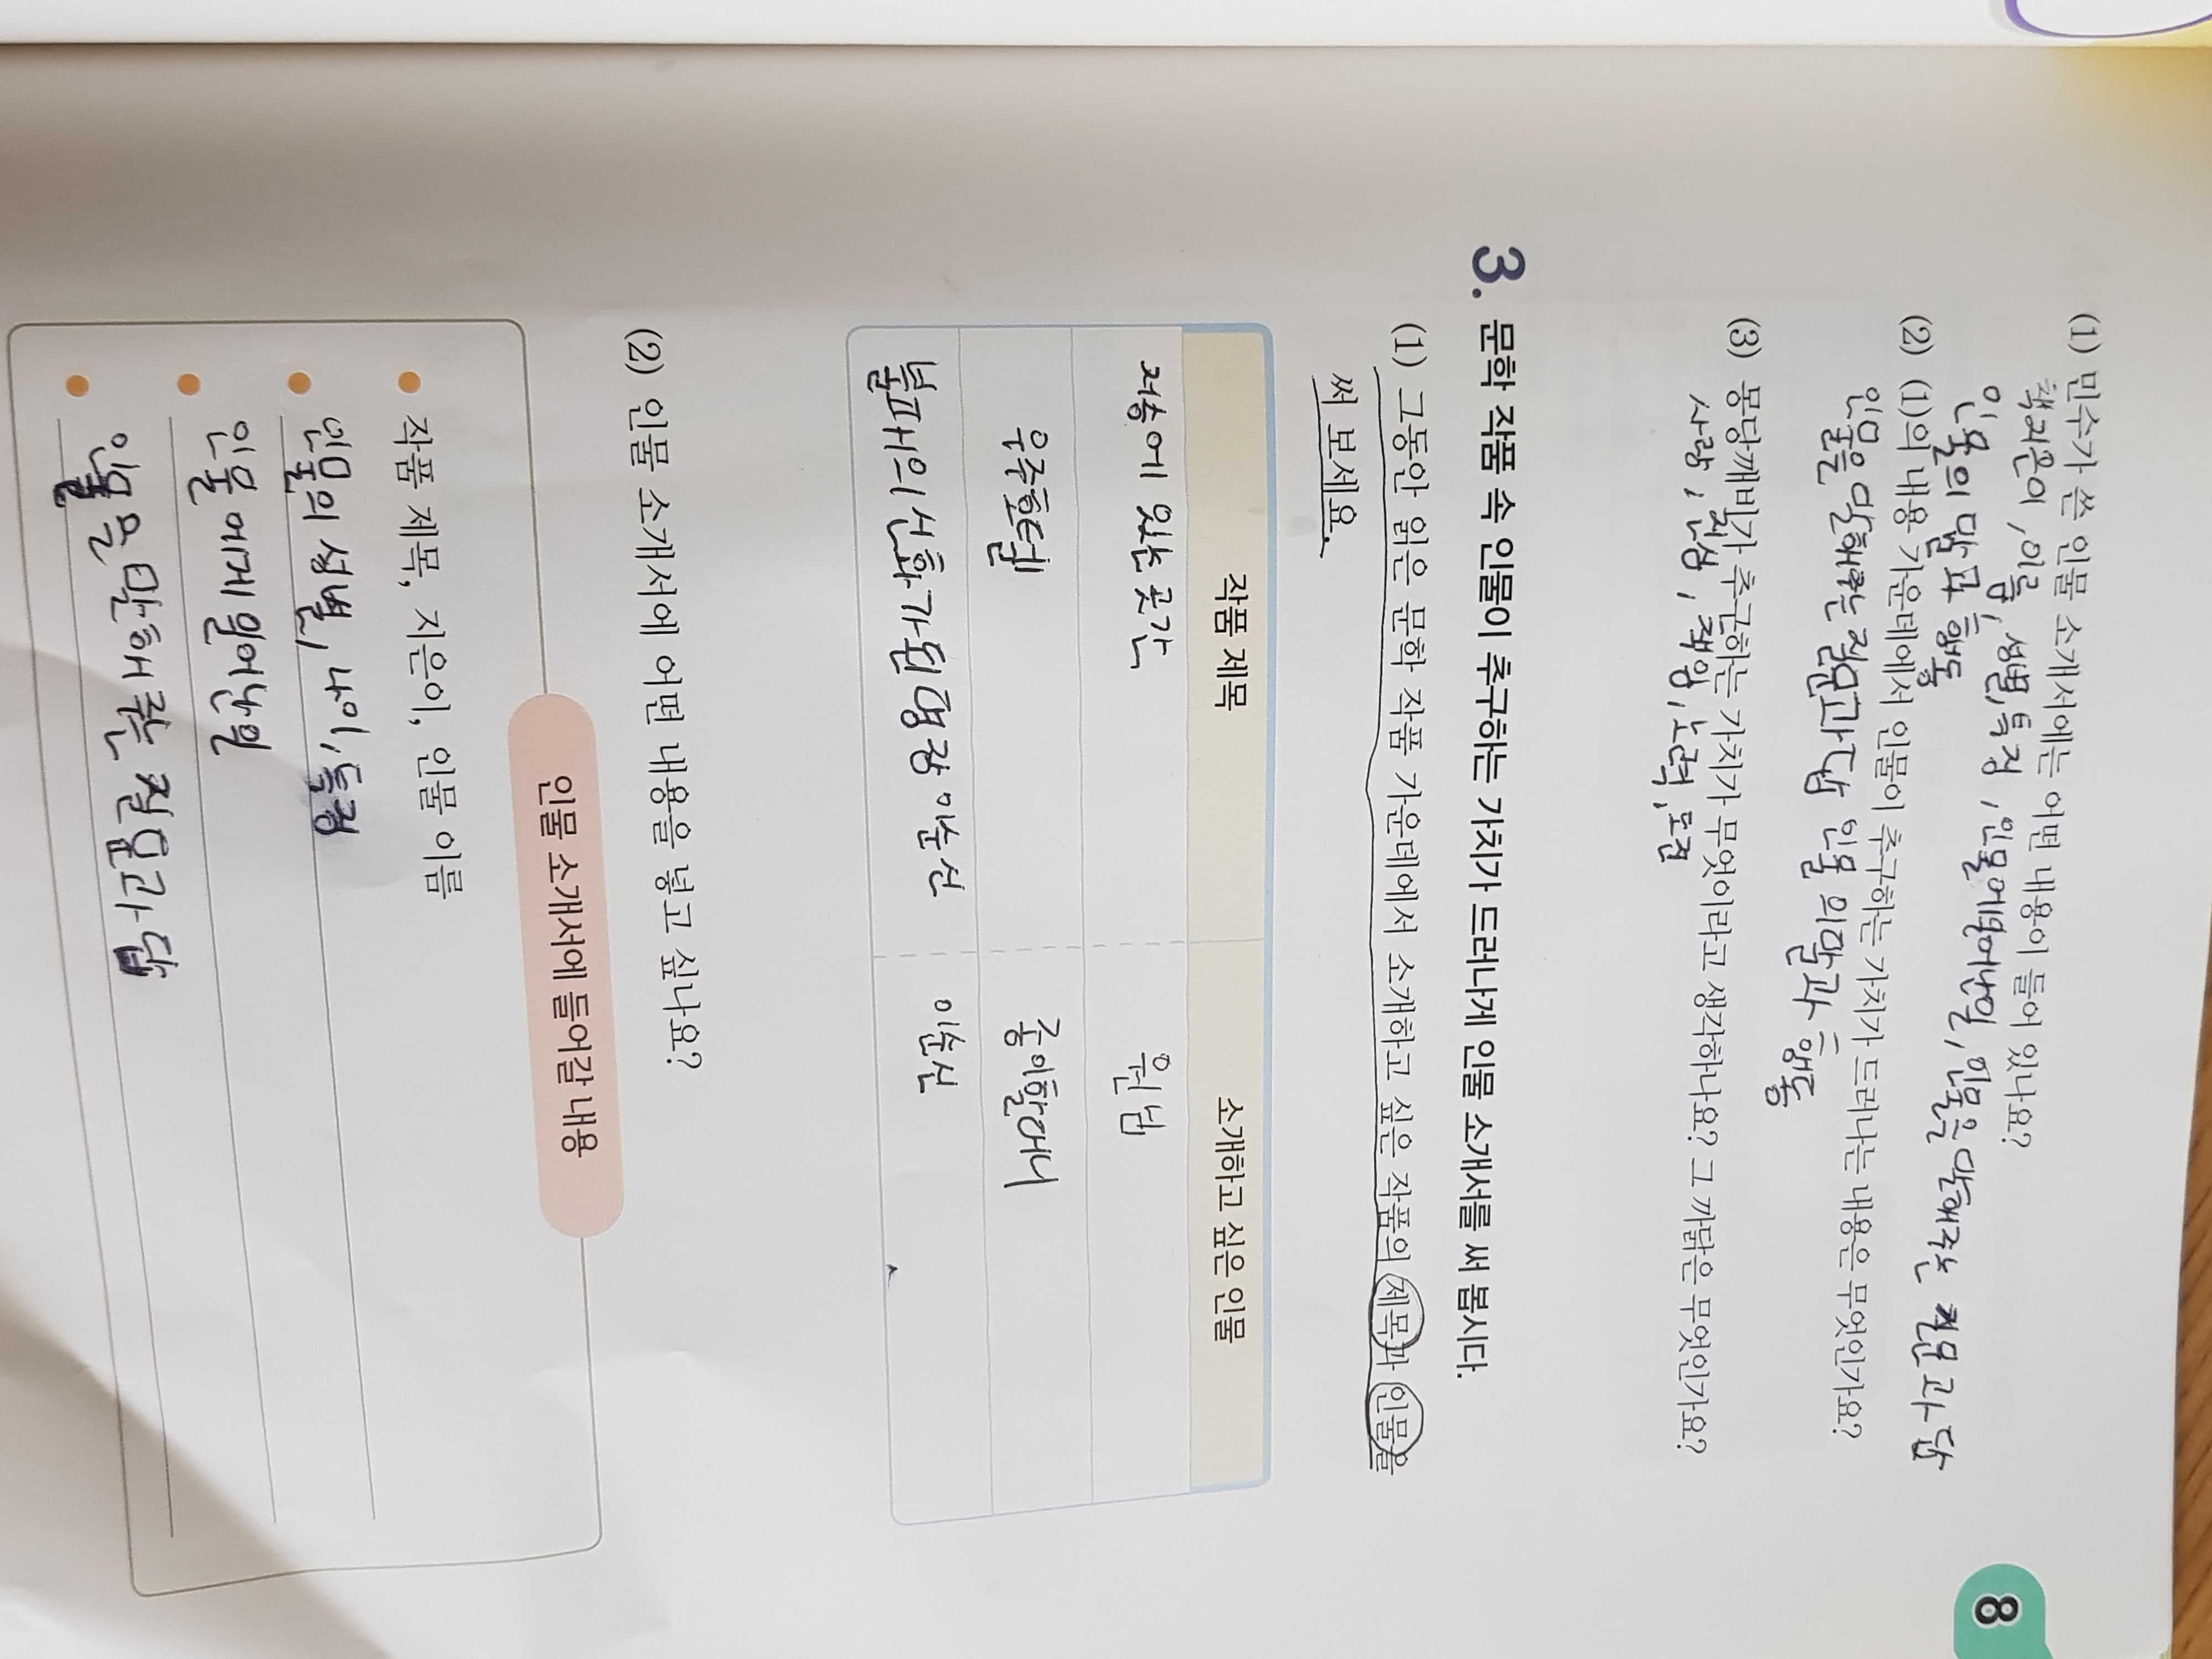 (1) 민수가 쓴 인물 소개서에는 어떤 내용이 들어 있나요?
책지은이, 이름, 성별, 특징, 인물에게일어난일, 인물을 말해주는 질문과 답
인물의 말과 행동
(2) (1)의 내용 가운데에서 인물이 추구하는 가치가 드러나는 내용은 무엇인가요?
인물을 말해주는 질문과 답 인물의말과 행동
(3) 몽당깨비가 추구하는 가치가 무엇이라고 생각하나요? 그 까닭은 무엇인가요?
사랑, 진심, 책임, 노력, 도전
3. 문학 작품 속 인물이 추구하는 가치가 드러나게 인물 소개서를 써 봅시다.
(1) 그동안 읽은 문학 작품 가운데에서 소개하고 싶은 작품의 제목과 인물을
써 보세요.
작품 제목 소개하고 싶은 인물
저승에 있는 곳간 원님
우주호텔 종이할머니
불패의신화가된명장 이순신 이순신
(2) 인물 소개서에 어떤 내용을 넣고 싶나요?
인물 소개서에 들어갈 내용
작품 제목, 지은이, 인물 이름
인물의 성별, 나이, 특징
인물에게 일어난일
인물을 말해주는 질문과 답
8